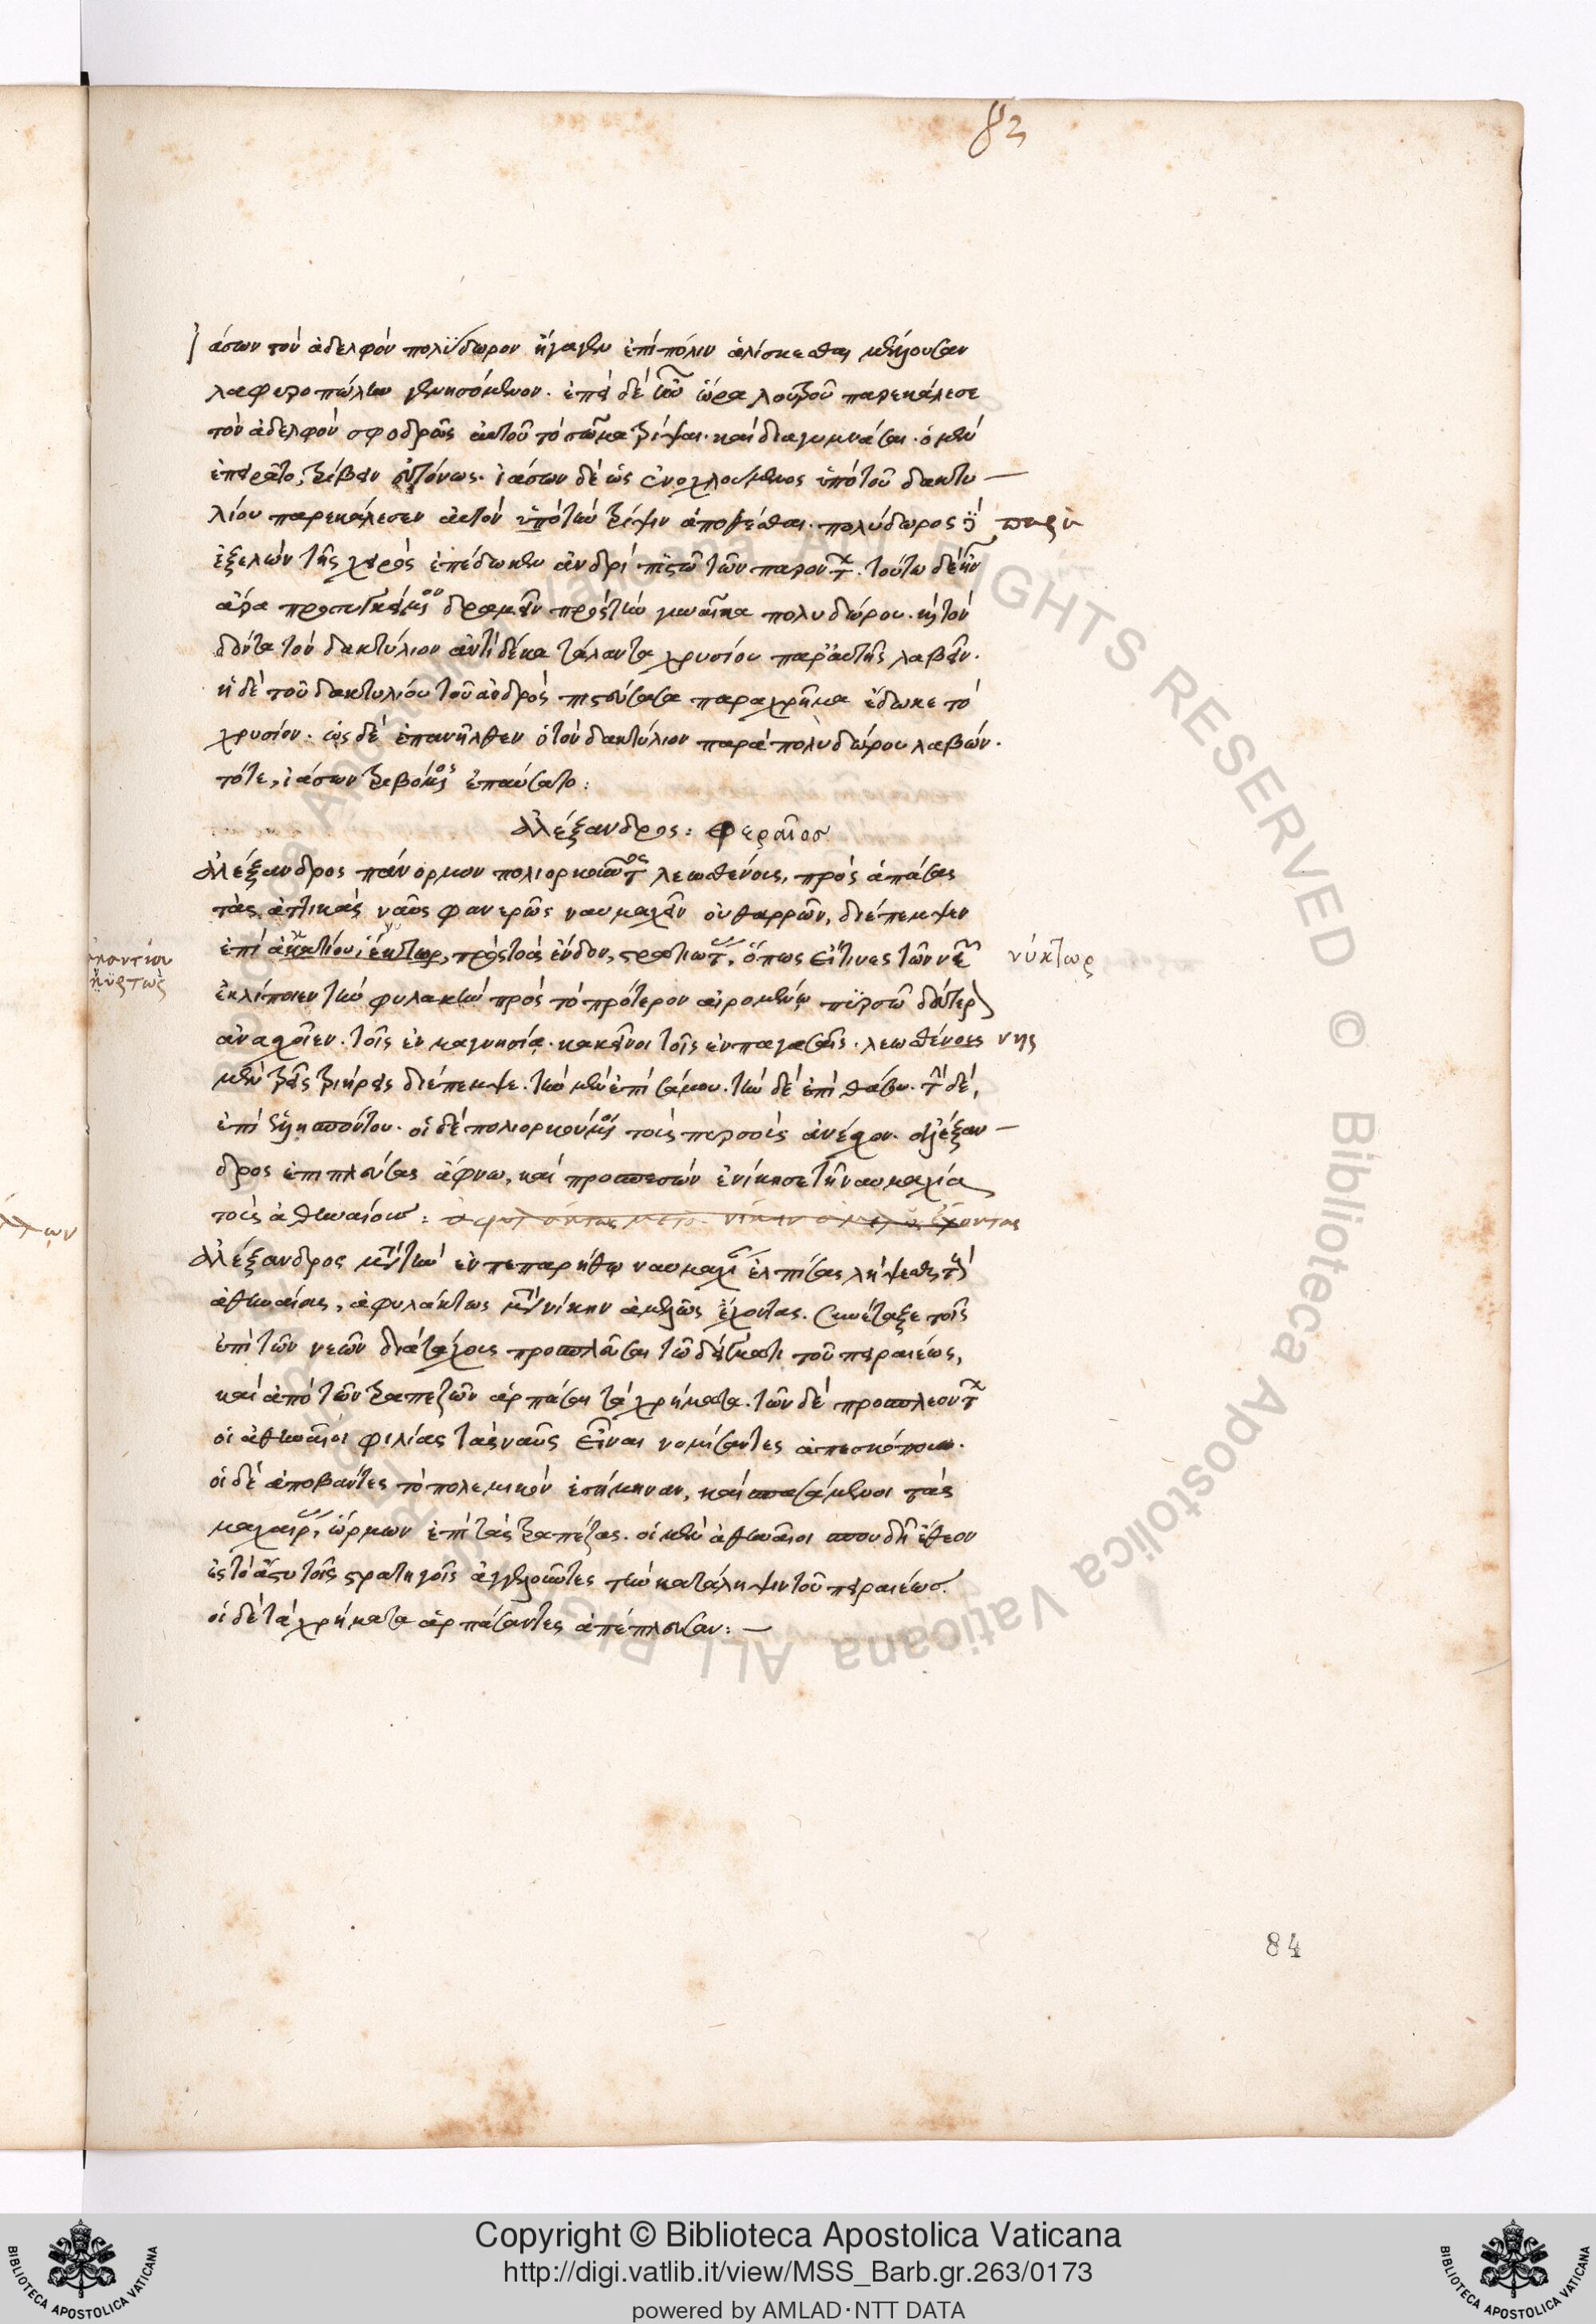 82
Ἰάσων τὸν ἀδελφὸν πολύδωρον ἤγαγεν ἐπὶ πόλιν ἁλίσκεσθαι μέλλουσαν
λαφυροπώλην γενησόμενον. ἐπεὶ δὲ ἦν ὥρα λουτροῦ παρεκάλεσε
τὸν ἀδελφὸν σφοδρῶς αὐτοῦ τὸ σῶμα τρίψαι. καὶ διαγυμνάσαι. ὁ μὲν
ἐπειρᾶτο τρίβειν εὐτόνως. ἰάσων δὲ ὡς ἐνοχλούμενος ὑπὸ τοῦ δακτυ-
λίου παρεκάλεσεν αὐτὸν ὑπὸ τὴν τρίψιν ἀποθέσθαι. πολύδωρος
ἐξελὼν τῆς χειρὸς ἐπέδωκεν ἀνδρὶ πιστῶ τῶν παρόντων. τούτω δὲ ἦν
ἄρα προστεταγμένον δραμεῖν πρὸς τὴν γυναῖκα πολυδώρου. καὶ τὸν
δόντα τὸν δακτύλιον ἀντὶ δέκα τάλαντα χρυσίου παρ' αὐτῆς λαβεῖν.
ἡ δὲ τοῦ δακτυλίου τοῦ ἀνδρὸς πιστεύσασα παραχρῆμα ἔδωκε τὸ
χρυσίον. ὡς δὲ ἐπανῆλθεν ὁ τὸν δακτύλιον παρὰ πολυδώρου λαβών.
τότε, ἰάσων τριβόμενος ἐπαύσατο:
Ἀλέξανδρος: φεραῖος
Ἀλέξανδρος πάνορμον πολιορκοῦντος λεωσθένους, πρὸς ἁπάσας
τὰς ἀττικὰς ναῦς φανερῶς ναυμαχεῖν οὐ θαρρῶν, διέπεμψεν
ἐπὶ ἀκατίου, πρὸς τοὺς ἔνδον, στρατιώτας, ὅπως εἴ τινες τῶν νεῶν νύκτωρ
ἐκλίποιεν τὴν φυλακὴν πρὸς τὸ πρότερον αἰρομένω πυρσῶ δεύτερον
ἀναχοῖεν. τοῖς ἐν μαγνησία. κακεῖνοι τοῖς ἐν παγασαῖς. λεωσθένους νης
μὲν τρεῖς τριήρεις διέπεμψε. τὴν μὲν ἐπὶ σάμου. τὴν δὲ ἐπὶ θάσου. τὴν δὲ,
ἐπὶ ἑλλησπόντου. οἱ δὲ πολιορκούμενοι τοὺς πυρσοὺς ἀνέσχον. ἀλέξαν-
δρος ἐπιπλεύσας ἄφνω, καὶ προσπεσὼν ἐνίκησε τῆ ναυμαχία
τοὺς ἀθηναίους:
Ἀλέξανδρος μετὰ τὴν ἐν πεπαρήθω ναυμαχίαν ἐλπίσας λήψεσθαι τοὺς
ἀθηναίους, ἀφυλάκτως μετὰ νίκην ἀμελῶς ἔχοντας. συνέταξε τοῖς
ἐπὶ τῶν νεῶν διὰ τάχους προσπλεῦσαι τῶ δείγματι τοῦ πειραιέως,
καὶ ἀπὸ τῶν τραπεζῶν ἁρπάσαι τὰ χρήματα. τῶν δὲ προσπλεόντων
οἱ ἀθηναῖοι φιλίας τὰς ναῦς εἶναι νομίσαντες ἀπεσκόπουν.
οἱ δὲ ἀποβάντες τὸ πολεμικὸν ἐσήμηναν, καὶ σπασάμενοι τὰς
μαχαίρας, ὥρμων ἐπὶ τὰς τραπέζας. οἱ μὲν ἀθηναῖοι σπουδῆ ἔθεον
ἐς τὸ ἄστυ τοῖς στρατηγοῖς ἀγγελοῦντες τὴν κατάληψιν τοῦ πειραιέως.
οἱ δὲ τὰ χρήματα ἁρπάσαντες ἀπέπλευσαν:—
84
BIBLIOTECA APOSTOLICA VATICANA
Copyright © Biblioteca Apostolica Vaticana
http://digi.vatlib.it/view/MSS_Barb.gr.263/0173
powered by AMLAD·NTT DATA
BIBLIOTECA APOSTOLICA VATICANA